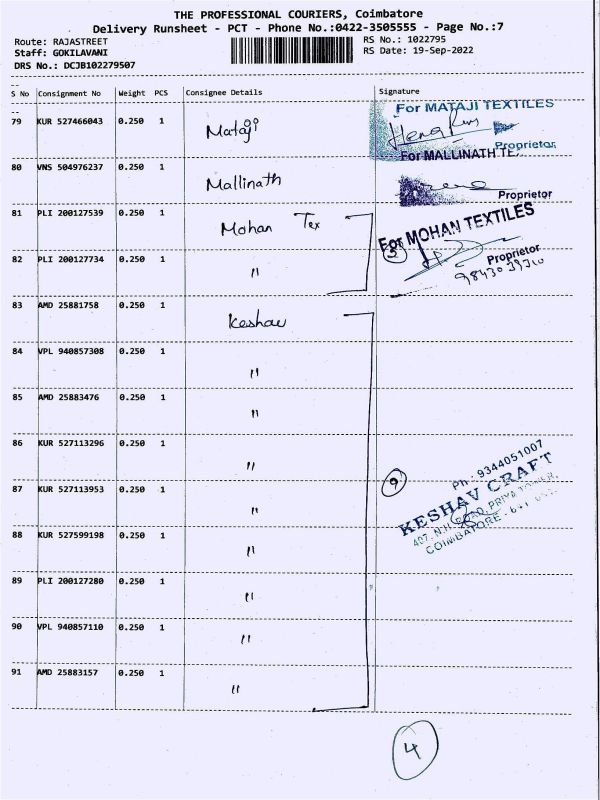 THE PROFESSIONAL COURIERS, Coimbatore
Delivery Runsheet - PCT - Phone No.:0422-3505555 - Page No.:7
Route: RAJASTREET
RS No.: 1022795
Staff: GOKILAVANI
RS Date: 19-Sep-2022
DRS No.: DCJB102279507
S No Consignment No Weight PCS Consignee Details Signature
79 KUR 527466043 0.250 1 Mataji
For MATAJI TEXTILES
Proprietor
80 VNS 504976237 0.250 1 Mallinath
For MALLINATH TE.
Proprietor
81 PLI 200127539 0.250 1 Mohan Tex
For MOHAN TEXTILES
82 PLI 200127734 0.250 1 "
Proprietor
83 AMD 25881758 0.250 1 Keshav
84 VPL 940857308 0.250 1 "
85 AMD 25883476 0.250 1 "
86 KUR 527113296 0.250 1 "
Ph : 9344051007
87 KUR 527113953 0.250 1 "
9
KESHAV CRAFT
407, N.H. ROAD, PRIYA TOWER,
COIMBATORE -
88 KUR 527599198 0.250 1 "
89 PLI 200127280 0.250 1 "
90 VPL 940857110 0.250 1 "
91 AMD 25883157 0.250 1 "
4